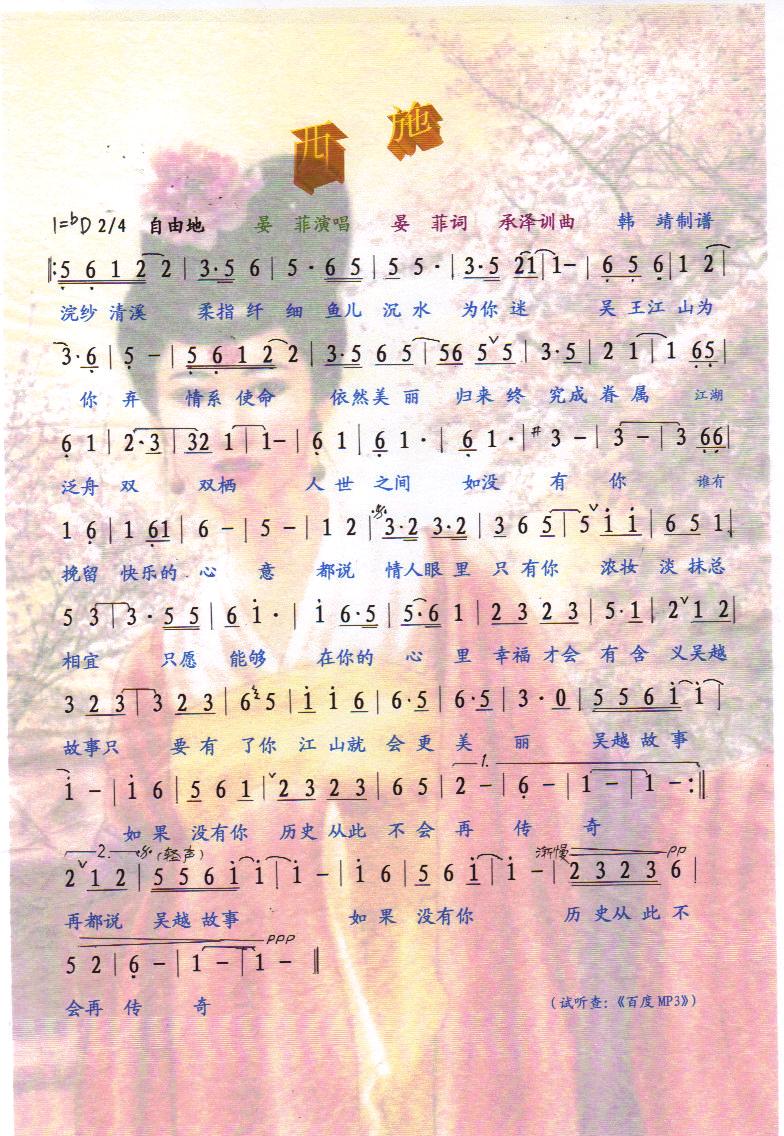 西 施
1=♭D 2/4 自由地 晏 菲演唱 晏 菲词 承泽训曲 韩 靖制谱
‖: 5 6 1 2 2 | 3·5 6 | 5 · 6 5 | 5 5 · | 3·5 21 | 1- | 6 5 6 | 1 2 |
浣纱 清溪 柔指 纤 细 鱼儿 沉 水 为你 迷 吴 王江 山为
3·6 | 5 - | 5 6 1 2 2 | 3·5 6 5 | 56 5ˇ5 | 3·5 | 2 1 | 1 65 |
你 弃 情系 使命 依然美 丽 归来 终 究成 眷 属 江湖
6 1 | 2·3 | 32 1 | 1- | 6 1 | 6 1 · | 6 1· | #3 - | 3 - | 3 66 |
泛舟 双 双栖 人 世 之间 如没 有 你 谁有
1 6 | 1 61 | 6 - | 5 - | 1 2 | 3·2 3·2 | 3 6 5 | 5ˇi i | 6 5 1 |
挽留 快乐的 心 意 都说 情人眼 里 只 有你 浓妆 淡 抹总
5 3 | 3· 5 5 | 6 i · | i 6·5 | 5·6 1 | 2 3 2 3 | 5·1 | 2ˇ1 2 |
相宜 只愿 能够 在你的 心 里 幸福 才会 有 含 义吴越
3 2 3 | 3 2 3 | 6 5 | i i 6 | 6·5 | 6·5 | 3·0 | 5 5 6 i | i |
故事只 要 有 了你 江 山就 会 更 美 丽 吴越 故 事
i - | i 6 | 5 6 1 |ˇ2 3 2 3 | 6 5 | 1. 2 - | 6 - | 1 - | 1 - :‖
如 果 没有你 历史 从此 不 会 再 传 奇
2. (轻声) 2ˇ1 2 | 5 5 6 i i | i - | i 6 | 5 6 i | i - | 渐慢 2 3 2 3 6 | pp
再都说 吴越 故事 如 果 没有你 历 史从 此 不
5 2 | 6 - | 1 - | 1 - ‖ ppp
会再 传 奇
(试听查:《百度MP3》)